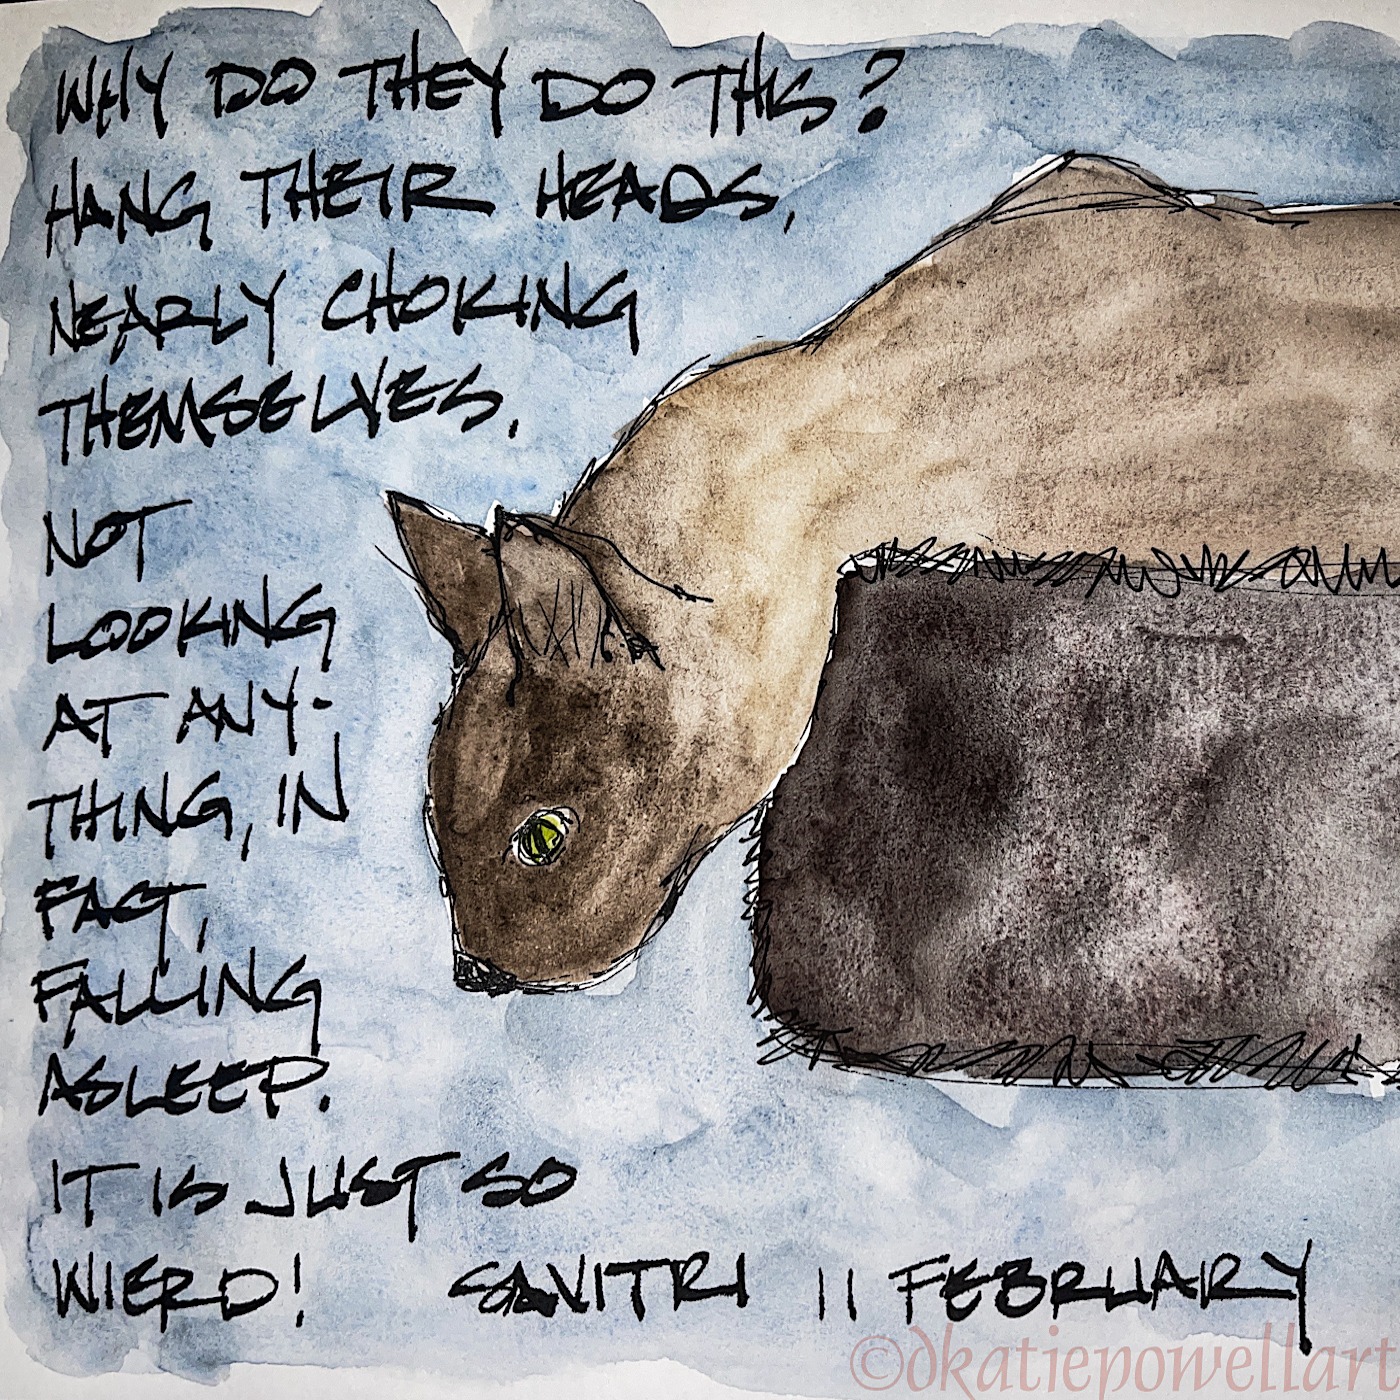 WHY DO THEY DO THIS?
HANG THEIR HEADS,
NEARLY CHOKING
THEMSELVES,
NOT
LOOKING
AT ANY-
THING, IN
FACT,
FALLING
ASLEEP.
IT IS JUST SO
WIERD! SAVITRI 11 FEBRUARY
©dkatiepowellart